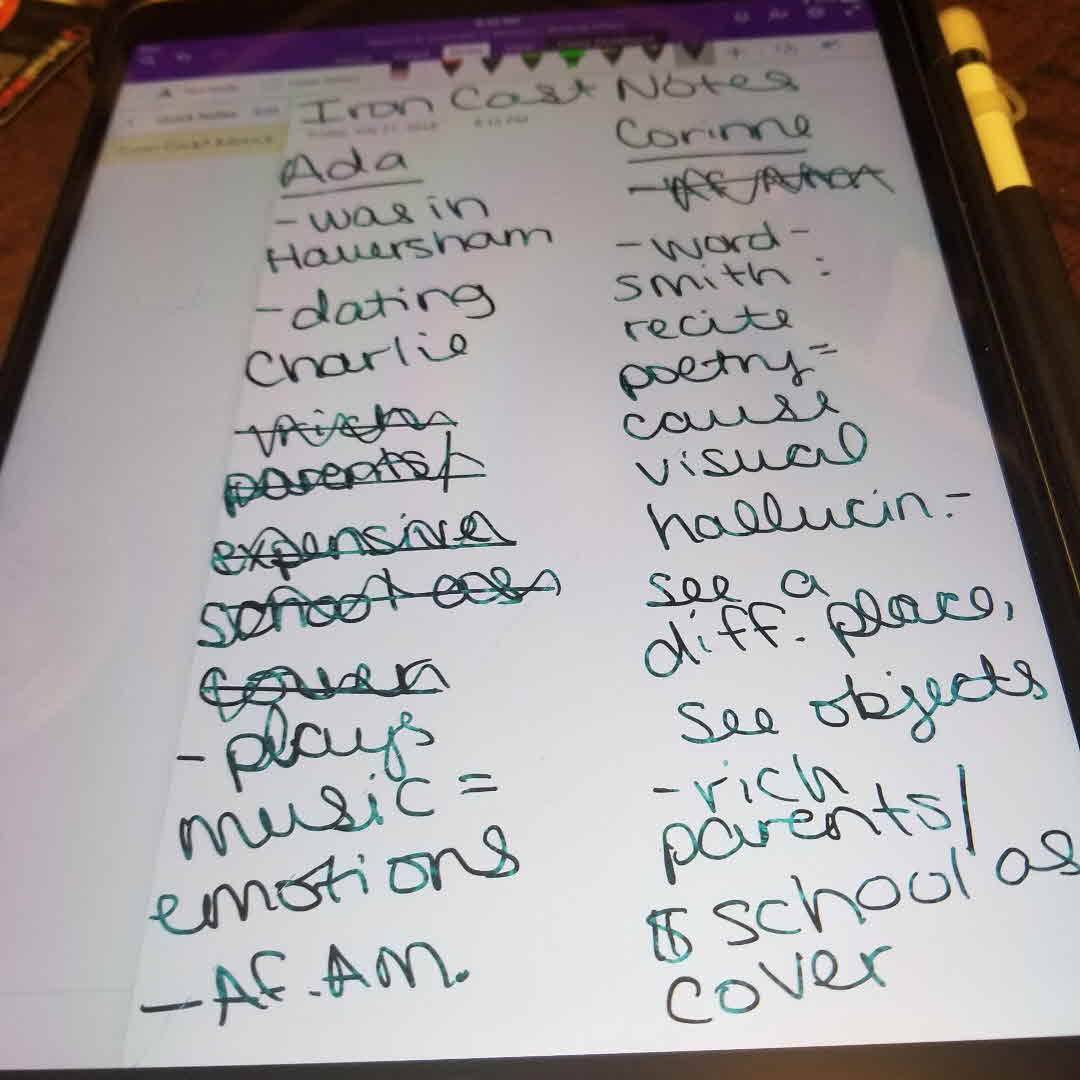 Iron Cast Notes
Ada
- was in
Haversham
- dating
Charlie
- rich
parents/
expensive
school as
cover
- plays
music =
emotions
- Af. Am.
Corinne
- word-
smith :
recite
poetry =
cause
visual
hallucin. -
see a
diff. place,
see objects
- rich
parents/
$ school as
cover